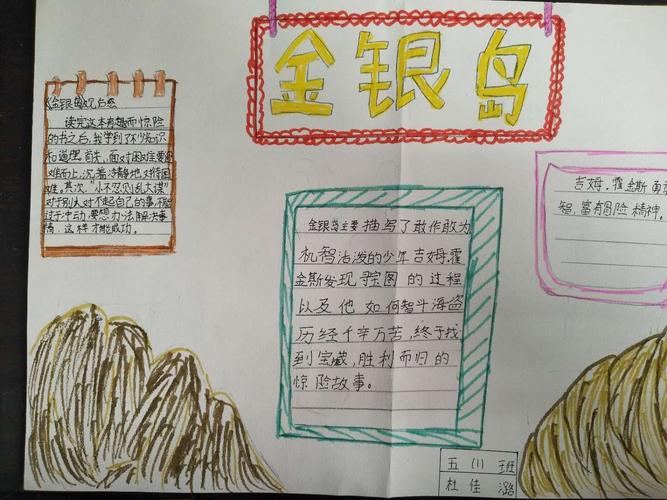 金银岛
《金银岛》观后感
读完这本有趣而惊险
的书之后,我学到了不少知识
和道理。首先,面对困难要迎
难而上,沉着冷静地对待困
难。其次,"小不忍则乱大谋"
对于别人对不起自己的事,不能
过于冲动,要想办法解决事
情,这样才能成功。
金银岛主要描写了敢作敢为
机智活泼的少年吉姆.霍
金斯发现寻宝图的过程
以及他如何智斗海盗
历经千辛万苦,终于找
到宝藏,胜利而归的
惊险故事。
吉姆.霍金斯勇敢
智,富有冒险精神。
五(1)班
杜佳潞